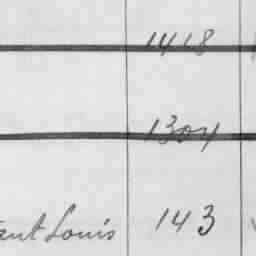 1418
1304
Louis 143